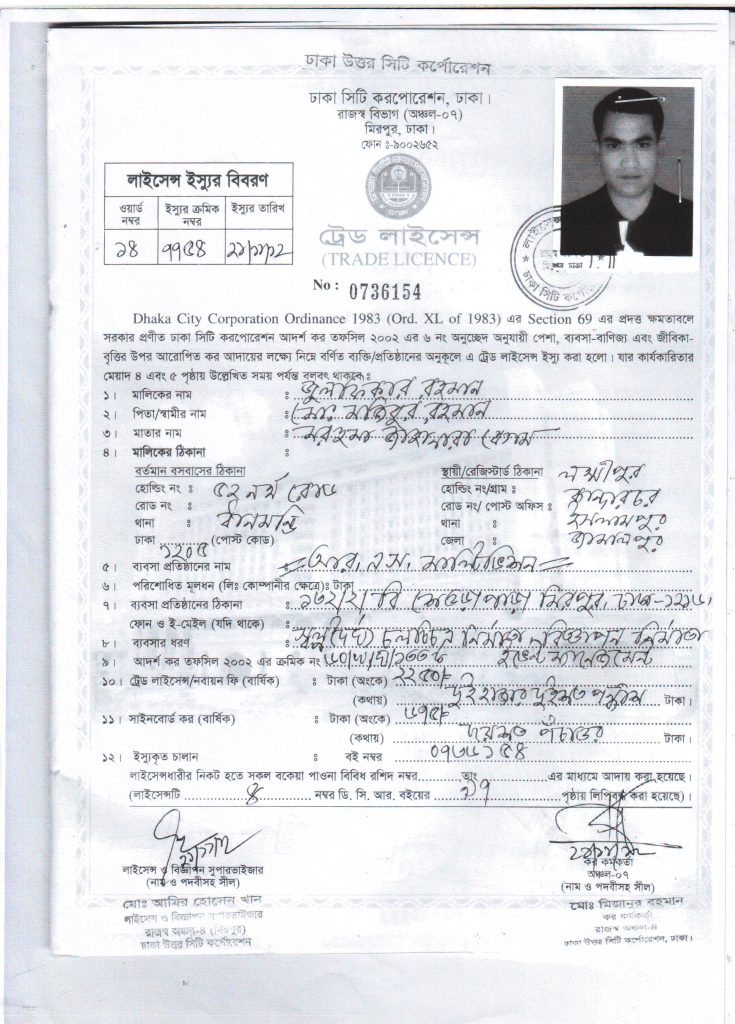 ঢাকা উত্তর সিটি কর্পোরেশন
ঢাকা সিটি করপোরেশন, ঢাকা।
রাজস্ব বিভাগ (অঞ্চল-০৭)
মিরপুর, ঢাকা।
ফোন ঃ-৯০০২৬৫২
লাইসেন্স ইস্যুর বিবরণ
ওয়ার্ড নম্বর ইস্যুর ক্রমিক নম্বর ইস্যুর তারিখ
১৪ ৭৭৫৪
ট্রেড লাইসেন্স
(TRADE LICENCE)
No : 0736154
Dhaka City Corporation Ordinance 1983 (Ord. XL of 1983) এর Section 69 এর প্রদত্ত ক্ষমতাবলে
সরকার প্রণীত ঢাকা সিটি করপোরেশন আদর্শ কর তফসিল ২০০২ এর ৬ নং অনুচ্ছেদ অনুযায়ী পেশা, ব্যবসা-বাণিজ্য এবং জীবিকা-
বৃত্তির উপর আরোপিত কর আদায়ের লক্ষ্যে নিম্নে বর্ণিত ব্যক্তি/প্রতিষ্ঠানের অনুকূলে এ ট্রেড লাইসেন্স ইস্যু করা হলো। যার কার্যকারিতার
মেয়াদ ৪ এবং ৫ পৃষ্ঠায় উল্লেখিত সময় পর্যন্ত বলবৎ থাকবে ঃ
১। মালিকের নাম ঃ জুলফিকার রহমান
২। পিতা/স্বামীর নাম ঃ মোঃ মজিবুর রহমান
৩। মাতার নাম ঃ মরহুমা জাহানারা বেগম
৪। মালিকের ঠিকানা ঃ
বর্তমান বসবাসের ঠিকানা স্থায়ী/রেজিস্টার্ড ঠিকানা লক্ষীপুর
হোল্ডিং নং ঃ ৫২ নর্থ রোড হোল্ডিং নং/গ্রাম ঃ কান্দারচর
রোড নং ঃ রোড নং/ পোস্ট অফিস ঃ
থানা ঃ ধানমন্ডি থানা ঃ ইসলামপুর
ঢাকা ১২০৫ (পোস্ট কোড) জেলা ঃ জামালপুর
৫। ব্যবসা প্রতিষ্ঠানের নাম ঃ আর, এস, মাল্টিভিশন
৬। পরিশোধিত মূলধন (লিঃ কোম্পানীর ক্ষেত্রে)ঃ টাকা
৭। ব্যবসা প্রতিষ্ঠানের ঠিকানা ঃ শেওড়াপাড়া মিরপুর, ঢাকা-১২১৬
ফোন ও ই-মেইল (যদি থাকে) ঃ
৮। ব্যবসার ধরণ ঃ স্বল্পদৈর্ঘ্য চলচ্চিত্র নির্মাতা বিজ্ঞাপন নির্মাতা
ইভেন্ট ম্যানেজমেন্ট
৯। আদর্শ কর তফসিল ২০০২ এর ক্রমিক নং
১০। ট্রেড লাইসেন্স/নবায়ন ফি (বার্ষিক) ঃ টাকা (অংকে) ২২৫০/=
(কথায়) দুই হাজার দুইশত পঞ্চাশ টাকা।
১১। সাইনবোর্ড কর (বার্ষিক) ঃ টাকা (অংকে) ৬৭৫/=
(কথায়) ছয়শত পঁচাত্তর টাকা।
১২। ইস্যুকৃত চালান ঃ বই নম্বর ০৭৩৬১৫৪
লাইসেন্সধারীর নিকট হতে সকল বকেয়া পাওনা বিবিধ রশিদ নম্বর তাং এর মাধ্যমে আদায় করা হয়েছে।
(লাইসেন্সটি ৪ নম্বর ডি. সি. আর. বইয়ের পৃষ্ঠায় লিপিবদ্ধ করা হয়েছে)।
লাইসেন্স ও বিজ্ঞাপন সুপারভাইজার
(নাম ও পদবীসহ সীল)
মোঃ আমির হোসেন খান
লাইসেন্স ও বিজ্ঞাপন সুপারভাইজার
রাজস্ব অঞ্চল-৪ (মিরপুর)
ঢাকা উত্তর সিটি কর্পোরেশন
কর কর্মকর্তা
অঞ্চল-০৭
(নাম ও পদবীসহ সীল)
মোঃ মিজানুর রহমান
কর কর্মকর্তা
রাজস্ব অঞ্চল-৪
ঢাকা উত্তর সিটি কর্পোরেশন, ঢাকা।